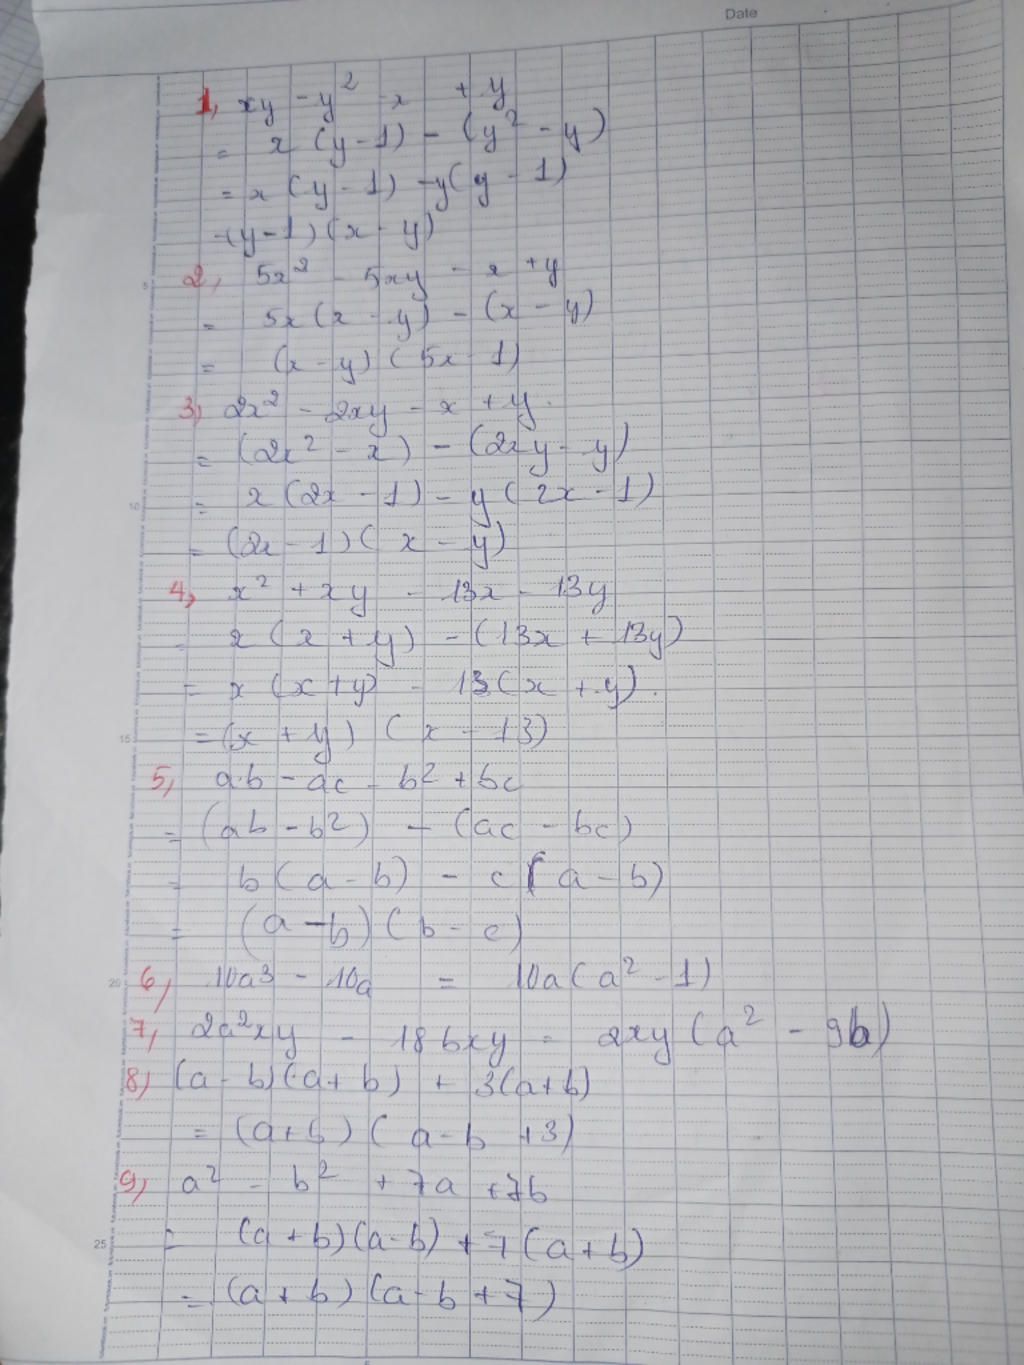 Date
1, xy - y² - x + y
= x (y - 1) - (y² - y)
= x (y - 1) - y(y - 1)
=(y-1)(x - y)
2, 5x² - 5xy - x + y
= 5x(x - y) - (x - y)
= (x - y)(5x - 1)
3, 2x² - 2xy - x + y.
= (2x² - x) - (2xy - y)
= x(2x - 1) - y(2x - 1)
= (2x - 1)(x - y)
4, x² + xy - 13x - 13y
= x (x + y) - (13x + 13y)
= x (x + y) - 13(x + y).
= (x + y) (x - 13)
5, ab - ac - b² + bc
= (ab - b²) - (ac - bc)
= b(a - b) - c(a - b)
= (a - b)(b - c)
6, 10a³ - 10a = 10a(a² - 1)
7, 2a²xy - 18bxy = 2xy(a² - 9b)
8) (a - b)(a + b) + 3(a + b)
= (a + b)(a - b + 3)
9) a² - b² + 7a + 7b
= (a + b)(a - b) + 7(a + b)
= (a + b)(a - b + 7)